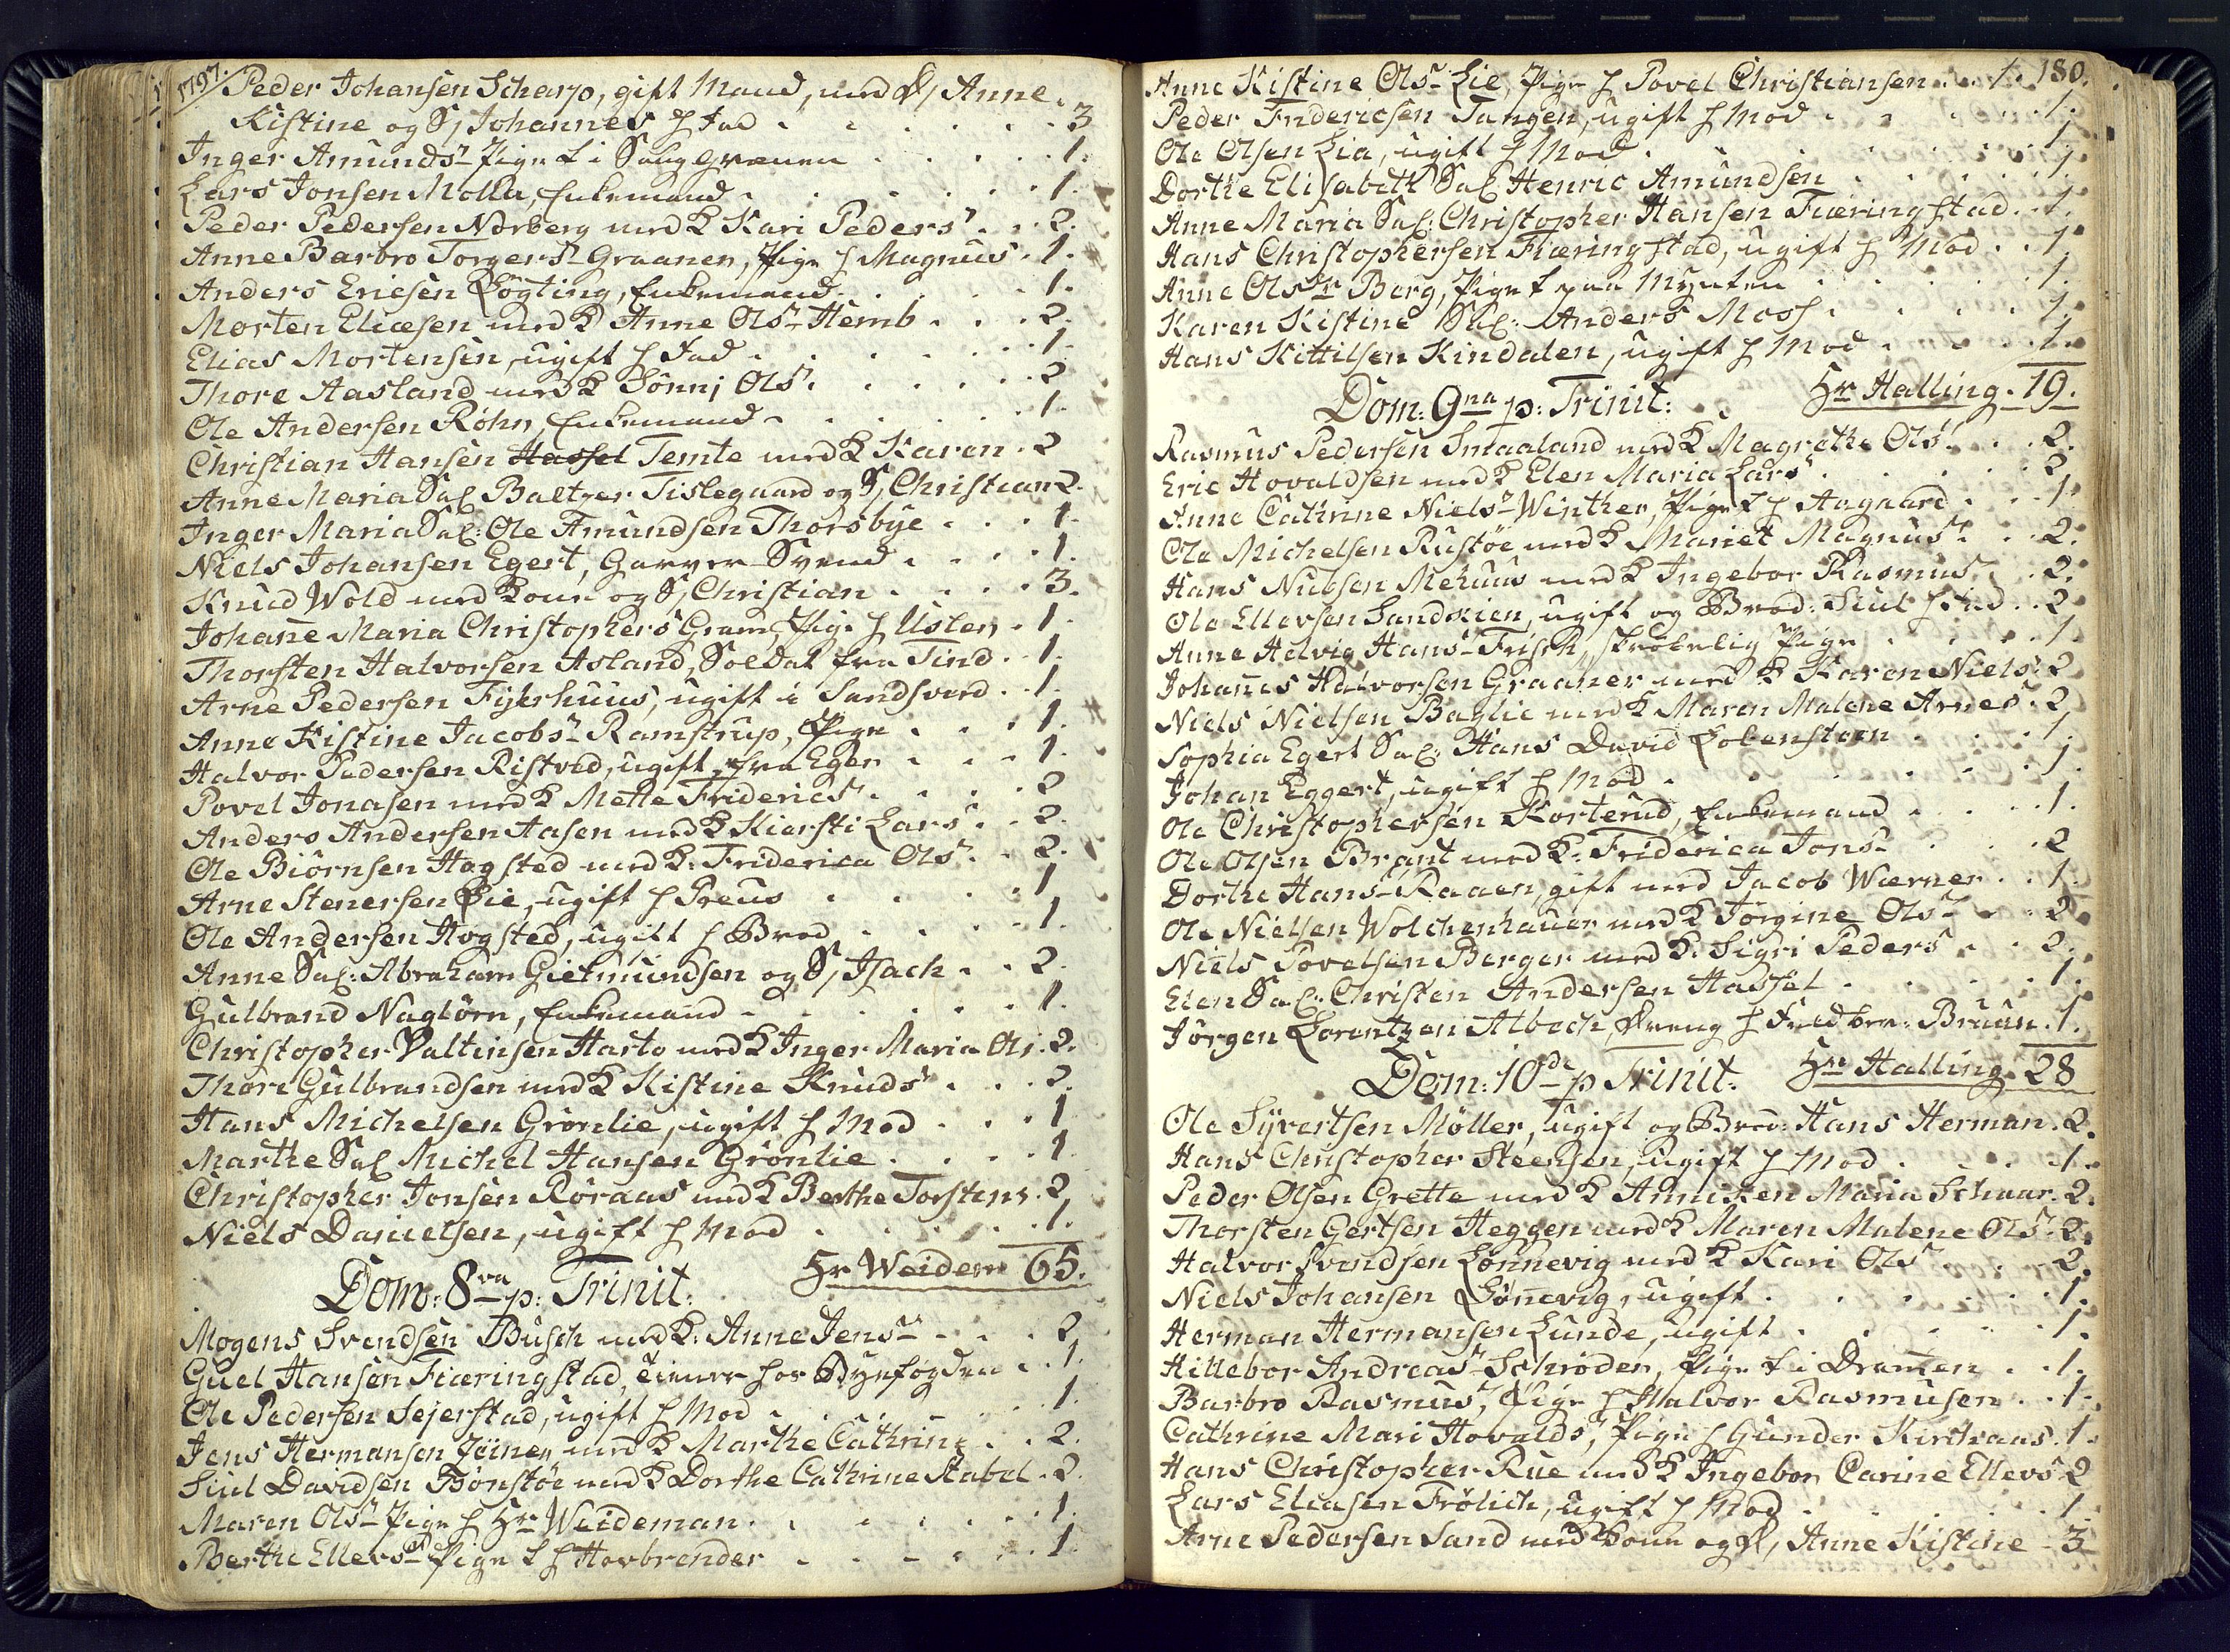 1797.
Peder Johansen Scharp, gift Mand, med D, Anne
Kistine og S, Johannes h Fad . . . . 3
Inger Amunds.r Pige t i Saug Grænen . . . . 1.
Lars Jonsen Molla, Enkemand . . . . 1.
Peder Pedersen Norberg med K Kari Peders.r . . 2.
Anne Barbro Torgers.r Graanen, Pige h Magnus . 1.
Anders Ericsen Løgting, Enkemand . . . . 1.
Morten Eliæsen med K Anne Ols.r Hemb . . . 2.
Elias Mortensen, ugift h Fad . . . . 1.
Thore Aasland med K Sønnj Ols.r . . . . 2
Ole Andersen Røhn, Enkemand . . . . 1.
Christian Hansen Hassel Temte med K Karen . 2
Anne Maria Sal Baltzer Tislegaard og S, Christian 2.
Inger Maria Sal: Ole Amundsen Thorsbye . . . 1.
Niels Johansen Egert, Garver Svend . . . . 1.
Knud Wold med Kone og S, Christian . . . . 3.
Johañe Maria Christophers.r Gram, Pige h Usler . 1.
Thorsten Halvorsen Asland, Soldat fra Tind . 1.
Arne Pedersen Fijkrhuus, ugift i Sandsverd . 1.
Anne Kistine Jacobs.r Ramstrup, Pige . . . 1.
Halvor Pedersen Ristved, ugift, fra Eger . . . 1
Povel Jonasen med K Mette Friderics.r . . . . 2
Anders Andersen Aasen med K Kiersti Lars.r . . 2.
Ole Biørnsen Hagsted med K: Friderica Ols.r . . 2.
Arne Stenersen Lie, ugift h Preus . . . . 1
Ole Andersen Hogsted, ugift h Brod . . . . 1.
Anne Sal: Abraham Gietmundsen og S, Isach . . 2.
Gulbrand NagløRn, Enkemand . . . . 1.
Christopher Valtinsen Harto med K Inger Maria Ols . 2.
Thore Gulbrandsen med K Kistine Knuds.r . . . 2.
Hans Michelsen Grønlie, ugift h Mod . . . 1
Marthe Sal Michel Hansen Grønlie . . . . 1
Christopher Jonsen Røraas med K Berthe Torstens . 2
Niels Danielsen, ugift h Mod . . . . 1.
Dom: 8va p: Trinit: Hr Weidem 65.
Mogens Svendsen Busch med K: Anne Jens.r . . . 2
Guel Hansen Fiæringstad, tiener hos Byefogden . . 1.
Ole Pedersen Sejerstad, ugift h Mod . . . . 1.
Jens Hermansen Jøiner, med K Marthe Cathrine . . 2.
Siul Davidsen Bønstøe med K Dorthe Cathrine Stabel . 2.
Maren Ols.r Pige h Hr Weideman . . . . 1.
Berthe Ellevs.r Pige t h Hovbrender . . . . 1.
Anne Kistine Ols.r Lie, Pige h Povel Christiansen . . 1. 180.
Peder Fridericsen Tangen, ugift h Mod . . . . 1.
Ole Olsen Lia, ugift h Mod . . . . 1.
Dorthe Elisabeth Sal: Henric Amundsen . . . . 1.
Anne Maria Sal: Christopher Hansen Fiæringstad . 1.
Hans Christophersen Fiæringstad, ugift h Mod . . 1.
Anne Ols.r Berg, Pige t paa Mynten . . . . 1.
Karen Kistine Sal: Anders Moss . . . . 1.
Hans Kittilsen Kindalen, ugift h Mod . . . . 1.
Dom: 9na p: Trinit: Hr Halling . 19.
Rasmus Pedersen Smaaland med K Magrethe Ols.r . . 2.
Eric Hovaldsen med K Elen Maria Lars.r . . . . 2
Anne Cathrine Niels.r Winther, Pige t h Aagaard . . . 1.
Ole Michelsen Rustøe med K Mariet Magnus.r . . 2.
Hans Nielsen Mehuus med K Ingebor Rasmus . . 2.
Ole Ellevsen Sandskien, ugift og Brod: Siul h Fad . . 2
Anne Helvig Hans.r Frisch, skrøbelig Pige . . . . 1.
Johañes Halvorsen Graaner med K Karen Niels.r 2
Niels Nielsen Baglie med K Maren Malene Arnes.r . 2
Sophia Egert Sal: Hans David Lobenstein . . . . 1
Johan Eggert, ugift h Mod . . . . 1.
Ole Christophersen Korterud, Enkemand . . . . 1.
Ole Olsen Brant med K: Friderica Jons.r . . . 2
Dorthe Hans.r Raaen, gift med Jacob Wærner . . 1.
Ole Nielsen Wolchenhauer med K Jørgine Ols.r . . 2
Niels Povelsen Berger med K: Sigri Peders.r . . 2.
Elen Sal: Christen Andersen Hassel . . . . 1.
Jørgen Lorentzen Albech, Dreng h Feldber: Bruun . 1.
Dom: 10de p Trinit: Hr Halling . 28
Ole Syvertsen Møller, ugift og Brod: Hans Herman . 2.
Hans Christopher Steensen, ugift h Mod . . . . 1.
Peder Olsen Grette med K Anniken Maria Schaar . 2.
Thorsten Gertsen Heggen med K Maren Malene Ols.r . 2.
Halvor Svendsen Lønnevig med K Kari Ols.r . . . 2.
Niels Johansen Løñevig, ugift . . . . 1.
Herman Hermansen Lunde, ugift . . . . 1.
Hillebor Andreas.r Schrøder, Pige t i Dramen . . 1.
Barbro Rasmus.r, Pige h Halvor Rasmusen . . 1.
Cathrine Mari Hovalds.r, Pige h Gunder Kirkraas . 1.
Hans Christopher Rue med K Ingebor Carine Ellevs.r 2
Lars Eliasen Frølich, ugift h Mod . . . . 1.
Arne Pedersen Sand med Kone og D, Anne Kistine . 3